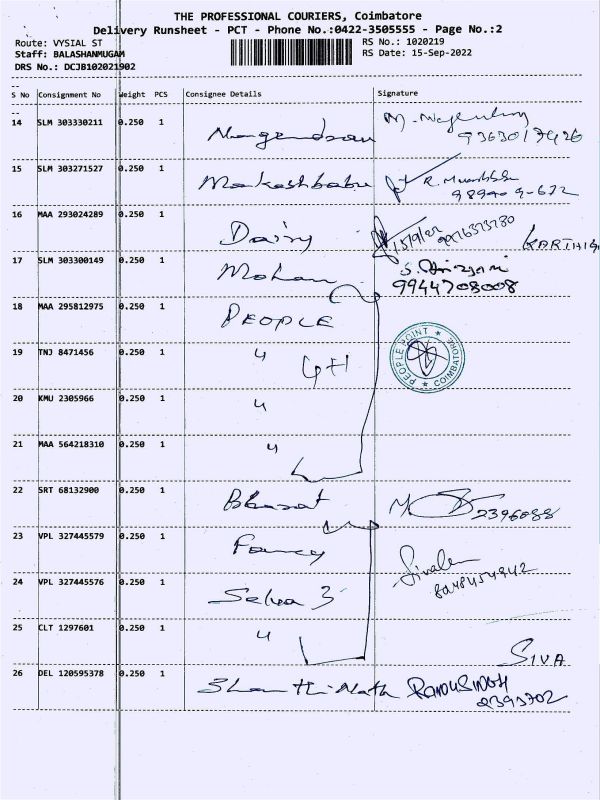 THE PROFESSIONAL COURIERS, Coimbatore
Delivery Runsheet - PCT - Phone No.:0422-3505555 - Page No.:2
Route: VYSIAL ST
Staff: BALASHANMUGAM
DRS No.: DCJB102021902
RS No.: 1020219
RS Date: 15-Sep-2022
S No Consignment No Weight PCS Consignee Details Signature
14 SLM 303330211 0.250 1 Nagendran
15 SLM 303271527 0.250 1 Makeshbabu R.
16 MAA 293024289 0.250 1 Dairy 15/9/22 KARTHIG
17 SLM 303300149 0.250 1 Mohan S.
9944708008
18 MAA 295812975 0.250 1 PEOPLE
PEOPLE POINT ★ COIMBATORE ★
19 TNJ 8471456 0.250 1 " 4H
20 KMU 2305966 0.250 1 "
21 MAA 564218310 0.250 1 "
22 SRT 68132900 0.250 1 Bharat 2396088
23 VPL 327445579 0.250 1 Fancy
24 VPL 327445576 0.250 1 Selva 3
25 CLT 1297601 0.250 1 " SIVA
26 DEL 120595378 0.250 1 Shanthi Nath
2393702